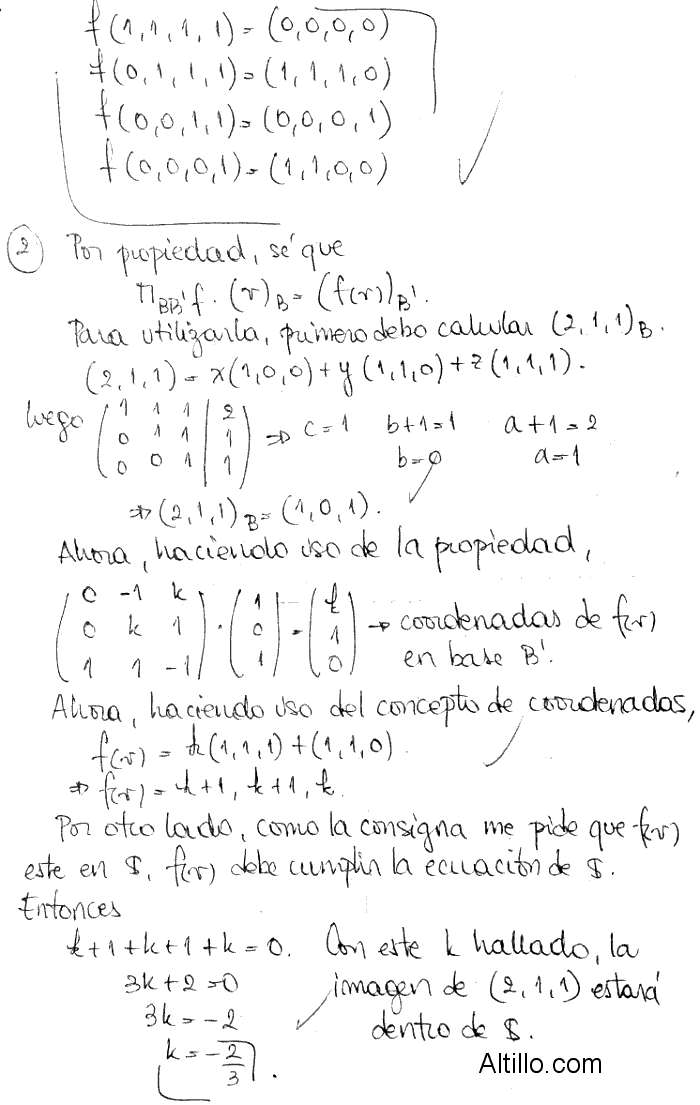 f(1,1,1,1)=(0,0,0,0)
f(0,1,1,1)=(1,1,1,0)
f(0,0,1,1)=(0,0,0,1)
f(0,0,0,1)=(1,1,0,0)
2 Por propiedad, sé que
M_BB' f · (v)_B = (f(v))_B'.
Para utilizarla, primero debo calcular (2,1,1)_B.
(2,1,1)=x(1,0,0)+y(1,1,0)+z(1,1,1).
luego (1 1 1 | 2
0 1 1 | 1
0 0 1 | 1) ⇒ c=1 b+1=1 a+1=2
b=0 a=1
⇒(2,1,1)_B=(1,0,1).
Ahora, haciendo uso de la propiedad,
(0 -1 k
0 k 1
1 1 -1) · (1
0
1) = (k
1
0) → coordenadas de f(v)
en base B'.
Ahora, haciendo uso del concepto de coordenadas,
f(v) = k(1,1,1)+(1,1,0).
⇒ f(v)=k+1, k+1, k.
Por otro lado, como la consigna me pide que f(v)
este en $, f(v) debe cumplir la ecuación de $.
Entonces
k+1+k+1+k=0. Con este k hallado, la
3k+2=0 imagen de (2,1,1) estará
3k=-2 dentro de $.
k=-2/3.
Altillo.com